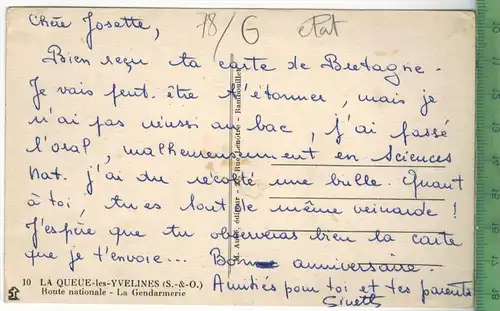 Chère Josette,
78/G etat
Bien reçu ta carte de Bretagne.
Je vais peut être t'étonner, mais je
n'ai pas réussi au bac, j'ai passé
l'oral, malheureusement en Sciences
Nat. j'ai du récolté une bulle. Quant
à toi, tu es tout de même veinarde !
J'espère que tu observeras bien la carte
que je t'envoie... Bon anniversaire.
Amitiés pour toi et tes parents
Ginette
10 LA QUEUE-les-YVELINES (S.-&-O.)
Route nationale - La Gendarmerie
M. éditeur - Rue - Rambouillet